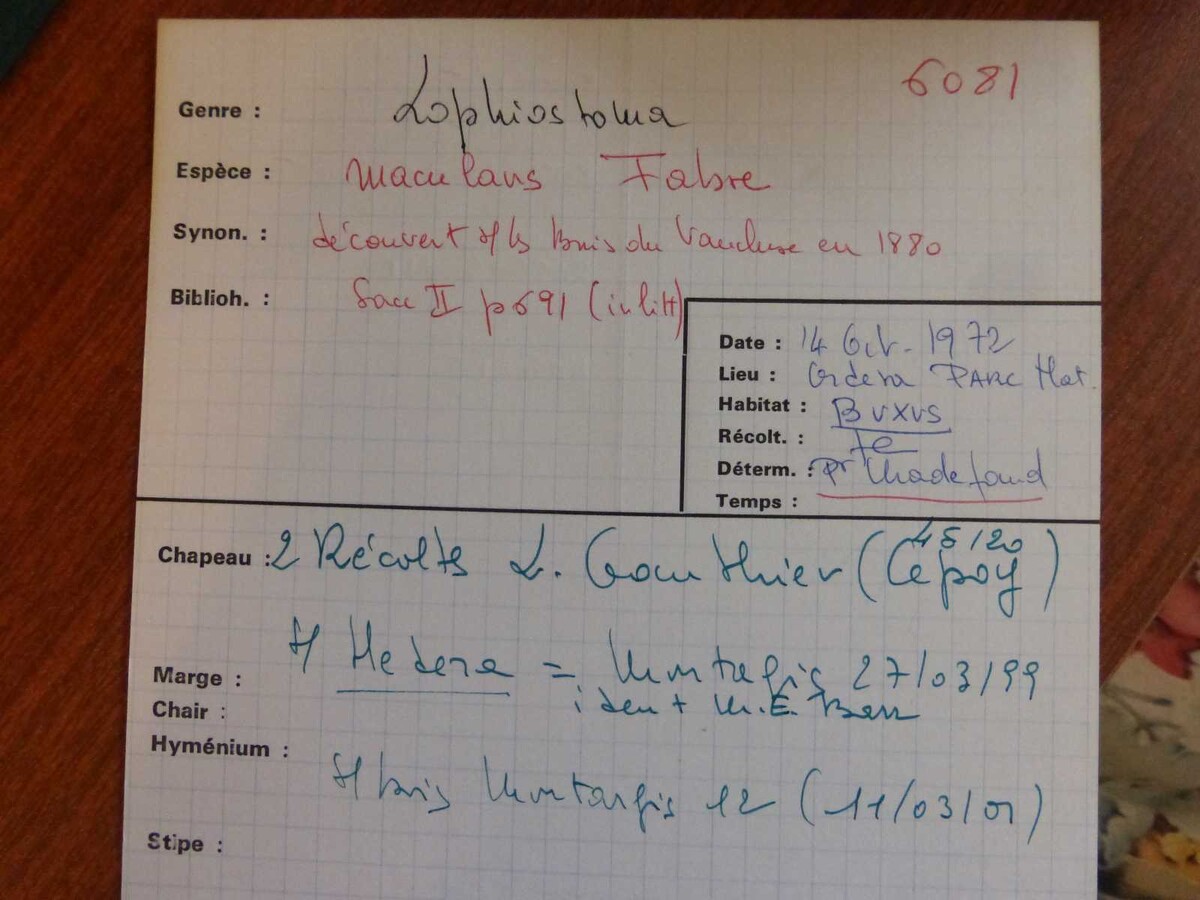 6081
Genre : Lophiostoma
Espèce : maculans Fabre
Synon. : découvert s/ les buis du Vaucluse en 1880
Biblioh. : Sacc II p 691 (in litt)
Date : 14 Oct. 1972
Lieu : Ordesa PARC Nat.
Habitat : BUXUS
Récolt. :
Déterm. : Pr Chadefaud
Temps :
Chapeau : 2 Récolts L. Gauthier (Cepoy 45120)
s/ Hedera = Montargis 27/03/99
Marge :
ident M.E.
Chair :
Hyménium :
s/ buis Montargis 12 (11/03/01)
Stipe :